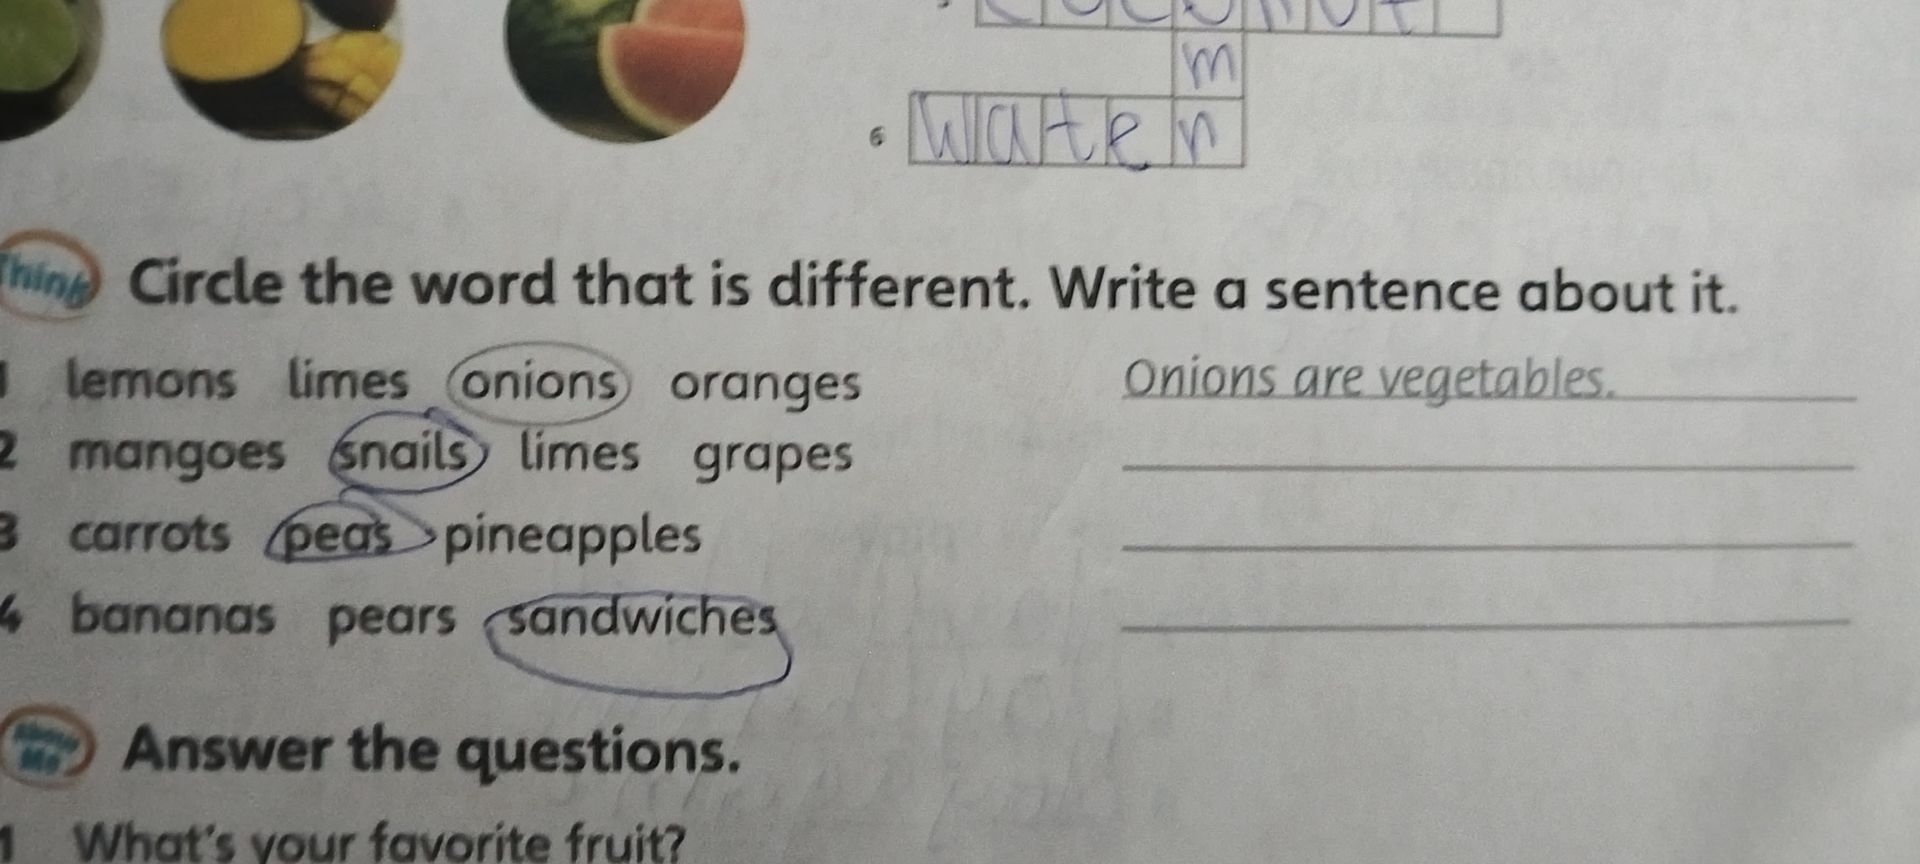 m
6 water
Think Circle the word that is different. Write a sentence about it.
1 lemons limes onions oranges Onions are vegetables.
2 mangoes snails limes grapes
3 carrots peas pineapples
4 bananas pears sandwiches
About Me Answer the questions.
1 What's your favorite fruit?